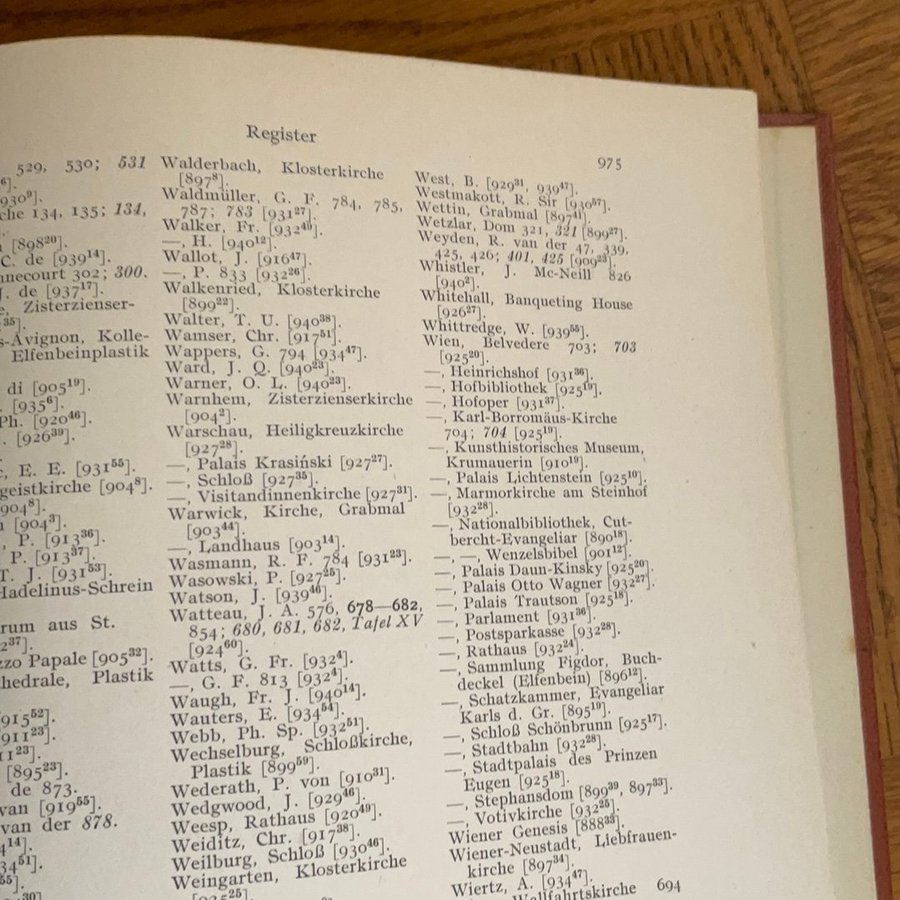 Register
975
529, 530; 531
⁶].
930⁹].
che 134, 135; 134,
[898²⁰].
C. de [939¹⁴].
nnecourt 302; 300.
J. de [937¹⁷].
e, Zisterzienser-
³⁵].
s-Avignon, Kolle-
Elfenbeinplastik
di [905¹⁹].
. [935⁶].
Ph. [920⁴⁶].
. [926³⁹].
, E. E. [931⁵⁵].
geistkirche [904⁸].
904⁸].
n [904³].
, P. [913³⁶].
P. [913³⁷].
T. J. [931⁵³].
Hadelinus-Schrein
rum aus St.
2³⁷].
zzo Papale [905³²].
hedrale, Plastik
[915⁵²].
911²³].
11²³].
[895²³].
de 873.
van [919⁵⁵].
van der 878.
4¹⁴].
34⁵¹].
⁵⁵].
Walderbach, Klosterkirche
[897⁸].
Waldmüller, G. F. 784, 785,
787; 783 [931²⁷].
Walker, Fr. [932⁴⁶].
—, H. [940¹²].
Wallot, J. [916⁴⁷].
—, P. 833 [932²⁶].
Walkenried, Klosterkirche
[899²²].
Walter, T. U. [940³⁸].
Wamser, Chr. [917⁵¹].
Wappers, G. 794 [934⁴⁷].
Ward, J. Q. [940²³].
Warner, O. L. [940²³].
Warnhem, Zisterzienserkirche
[904²].
Warschau, Heiligkreuzkirche
[927²⁸].
—, Palais Krasiński [927²⁷].
—, Schloß [927³⁵].
—, Visitandinnenkirche [927³¹].
Warwick, Kirche, Grabmal
[903⁴⁴].
—, Landhaus [903¹⁴].
Wasmann, R. F. 784 [931²³].
Wasowski, P. [927²⁵].
Watson, J. [939⁴⁶].
Watteau, J. A. 576, 678—682,
854; 680, 681, 682, Tafel XV
[924⁶⁰].
Watts, G. Fr. [932⁴].
—, G. F. 813 [932⁴].
Waugh, Fr. J. [940¹⁴].
Wauters, E. [934⁵⁴].
Webb, Ph. Sp. [932⁵¹].
Wechselburg, Schloßkirche,
Plastik [899⁵⁹].
Wederath, P. von [910³¹].
Wedgwood, J. [929⁴⁶].
Weesp, Rathaus [920⁴⁹].
Weiditz, Chr. [917³⁸].
Weilburg, Schloß [930⁴⁶].
Weingarten, Klosterkirche
[925²⁵].
West, B. [929³¹, 939⁴⁷].
Westmakott, R. Sir [930⁵⁷].
Wettin, Grabmal [897⁴¹].
Wetzlar, Dom 321, 321 [899²⁷].
Weyden, R. van der 47, 339,
425, 426; 401, 425 [909²³].
Whistler, J. Mc-Neill 826
[940²].
Whitehall, Banqueting House
[926²⁷].
Whittredge, W. [939⁵⁵].
Wien, Belvedere 703; 703
[925²⁰].
—, Heinrichshof [931³⁶].
—, Hofbibliothek [925¹⁹].
—, Hofoper [931³⁷].
—, Karl-Borromäus-Kirche
704; 704 [925¹⁹].
—, Kunsthistorisches Museum,
Krumauerin [910¹⁹].
—, Palais Lichtenstein [925¹⁰].
—, Marmorkirche am Steinhof
[932²⁸].
—, Nationalbibliothek, Cut-
bercht-Evangeliar [890¹⁸].
—, —, Wenzelsbibel [901¹²].
—, Palais Daun-Kinsky [925²⁰].
—, Palais Otto Wagner [932²⁷].
—, Palais Trautson [925¹⁸].
—, Parlament [931³⁶].
—, Postsparkasse [932²⁸].
—, Rathaus [932²⁴].
—, Sammlung Figdor, Buch-
deckel (Elfenbein) [896¹²].
—, Schatzkammer, Evangeliar
Karls d. Gr. [895¹⁹].
—, Schloß Schönbrunn [925¹⁷].
—, Stadtbahn [932²⁸].
—, Stadtpalais des Prinzen
Eugen [925¹⁸].
—, Stephansdom [899³⁹, 897³³].
—, Votivkirche [932²⁵].
Wiener Genesis [888³³].
Wiener-Neustadt, Liebfrauen-
kirche [897³⁴].
Wiertz, A. [934⁴⁷].
Wallfahrtskirche 694